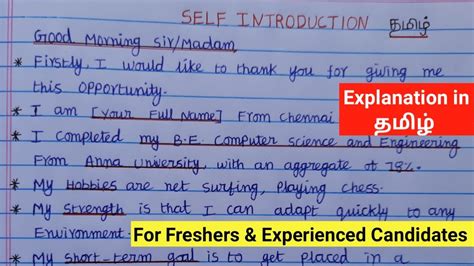 SELF INTRODUCTION தமிழ்
Good Morning Sir/Madam,
* Firstly, I would like to thank you for giving me
this opportunity.
* I am [Your Full Name] From Chennai
* I completed my B.E. Computer science and Engineering
From Anna University with an aggregate of 78%.
* My Hobbies are net surfing, Playing chess.
* My Strength is that I can adapt quickly to any
Environment
* My short-term goal is to get placed in a
Explanation in
தமிழ்
For Freshers & Experienced Candidates